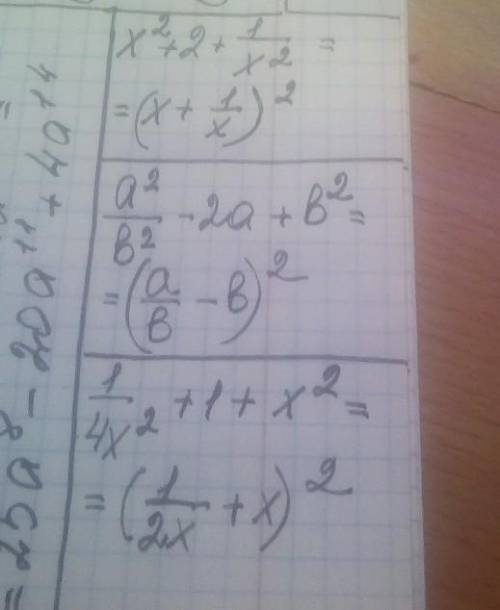 x² + 2 + 1/x² =
= (x + 1/x)²
a²/b² - 2a + b² =
= (a/b - b)²
1/4x² + 1 + x² =
= (1/2x + x)²
= 25a⁸ - 20a¹¹ + 4a¹⁴